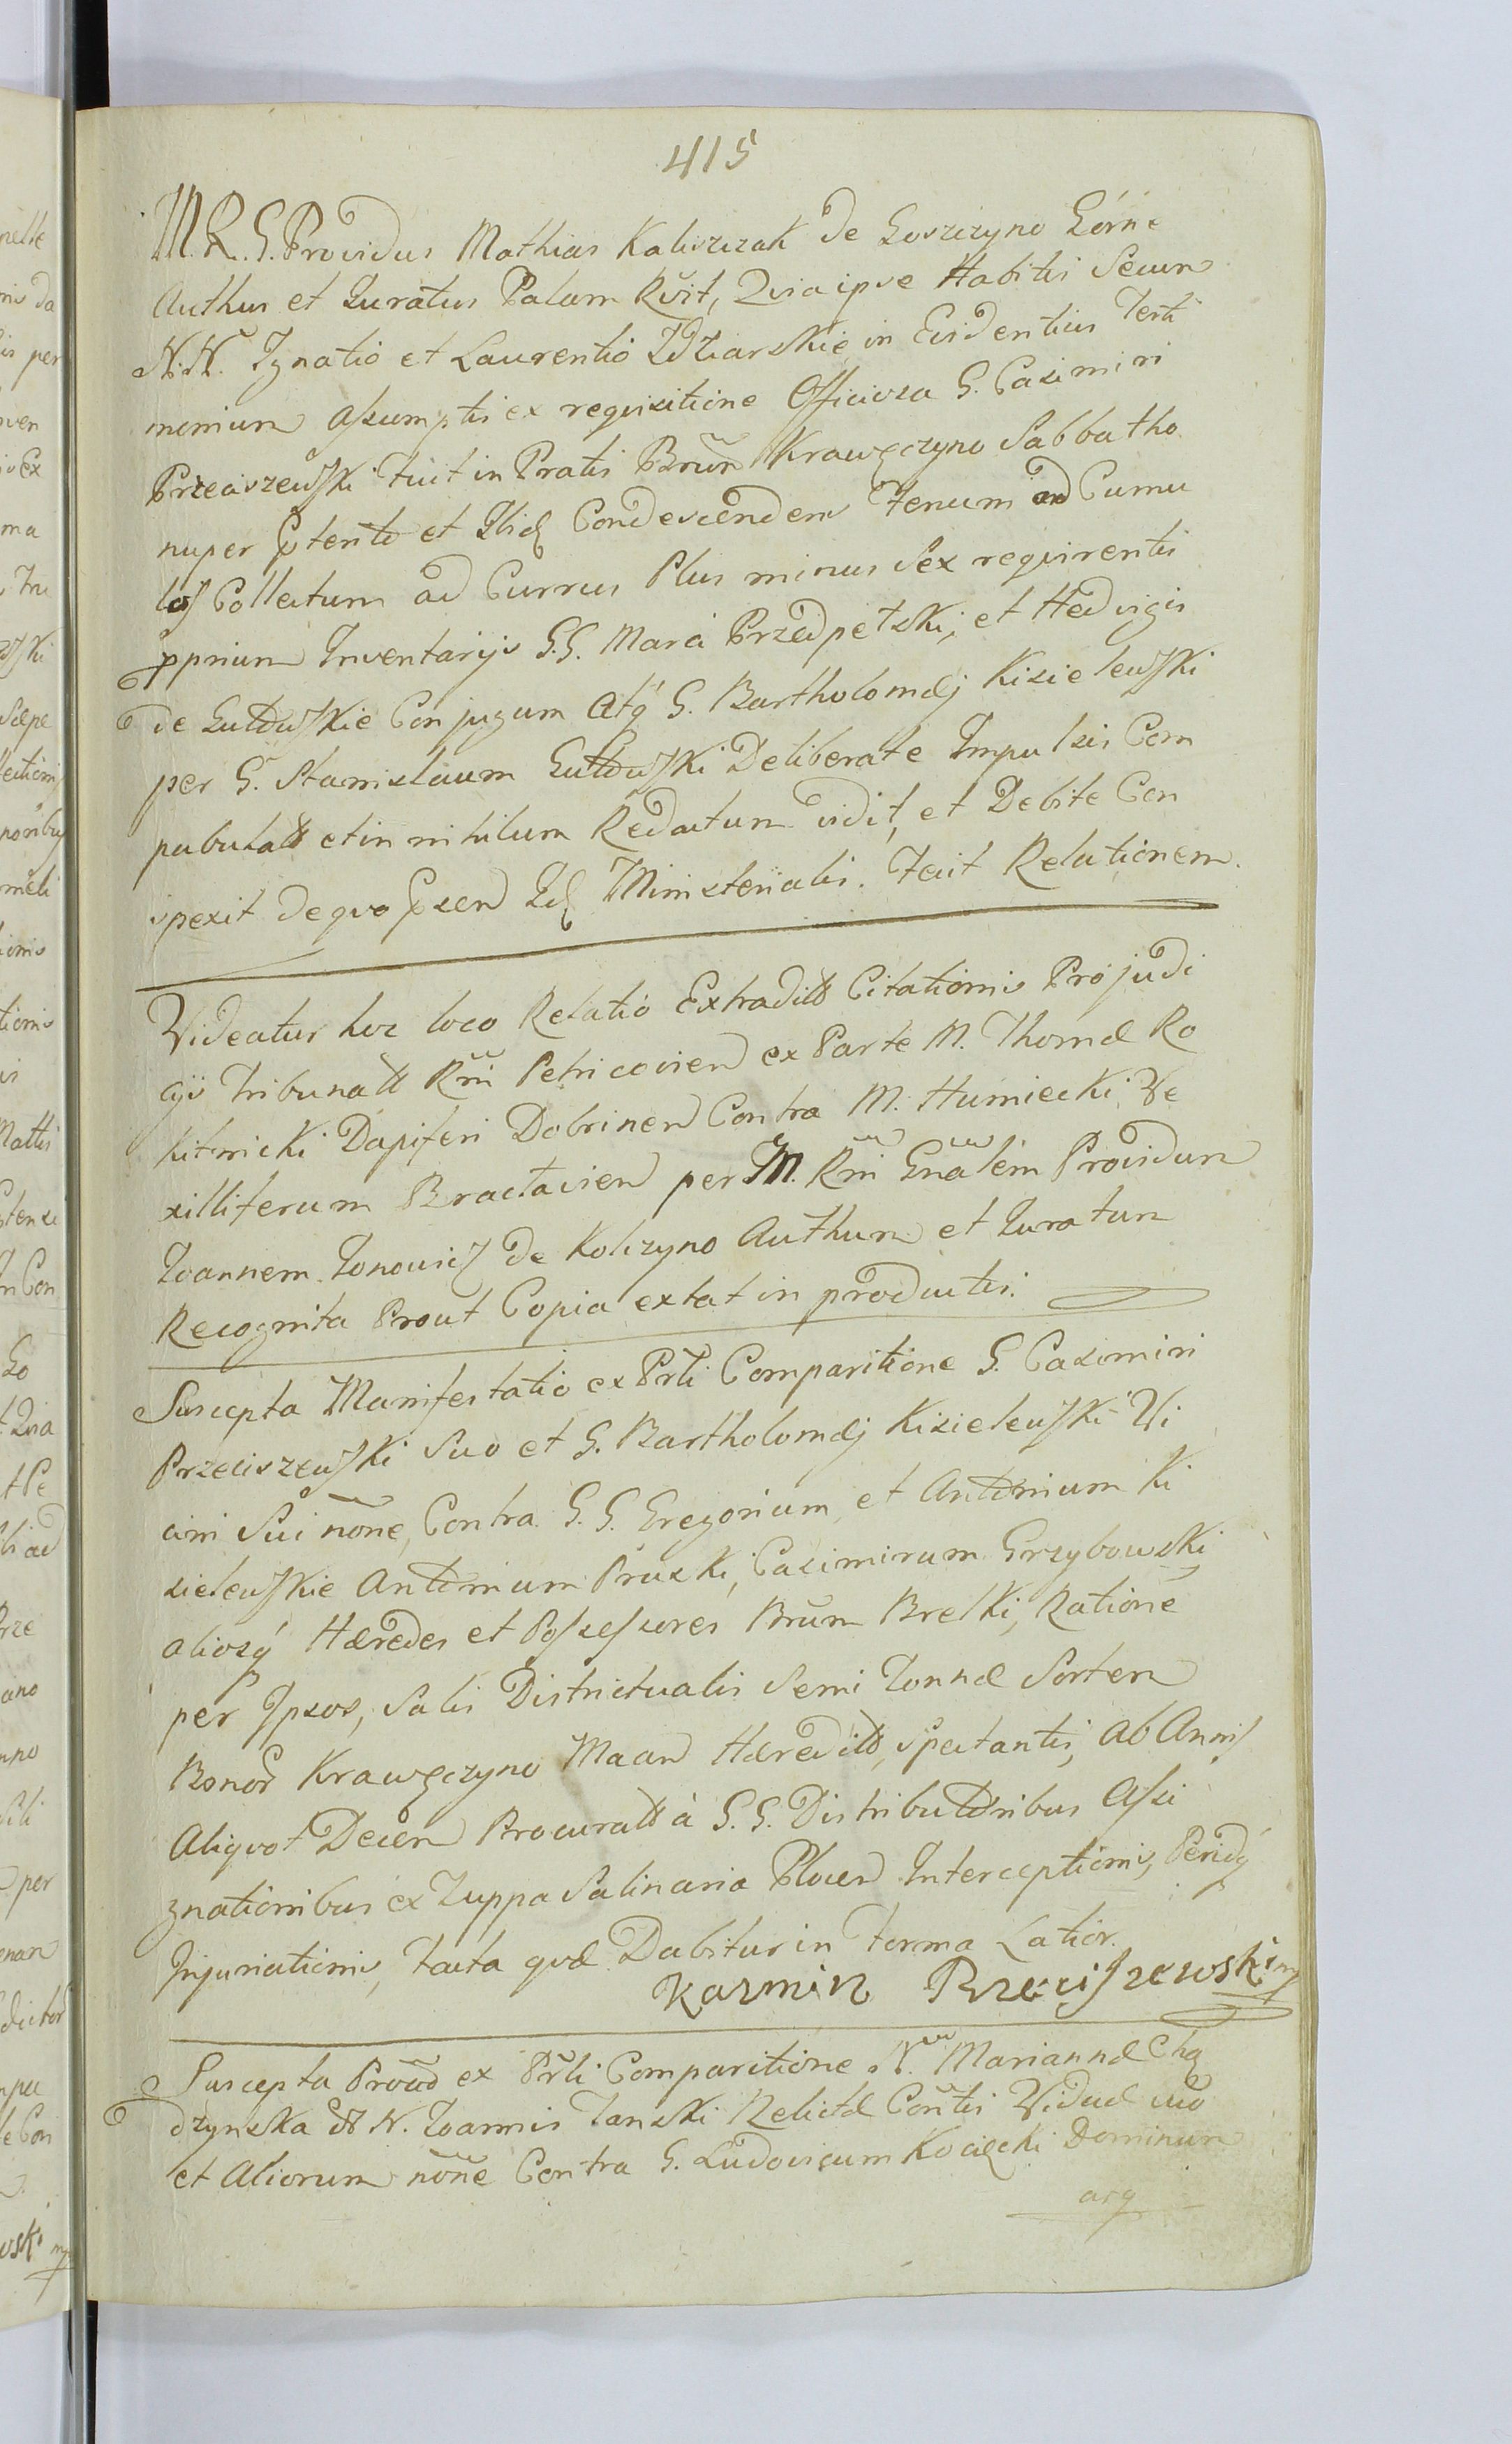 415
M. R. G. Providus Mathias Kaliszczak de Goszczyno Górne
Authus et Juratus Palam Rŭit, Quia ipse Habitis Secum
N. N. Ignatio et Laurentio Zdziarskie in Evidentius Testi
monium assumptis ex requisitione Officiosa G. Casimiri
Przeciszewski fuit in Pratis Bnŭm Krawęczyno Sabbatho
nuper pterito et Ibid Condescendens Fenum ad Cumu
los Collectum ad Currus Plus minus Sex requirentis
pprium Inventarijs G. G. Marci Przedpełski, et Hedvigis
de Gutowskie Conjugum atq G. Bartholomæj Kisielewski
per G. Stanislaum Gutowski Deliberate Impulsis Com
pabulatt et in nihilum Redactum vidit, et Debite Con
spexit de quo psen Id Ministerialis. Fecit Relationem.
Videatur hoc loco Relatio Extraditt Citationis Pro judi
cijs Tribunatt Rni Petricovien ex Parte M. Thomæ Ro
kitnicki Dapiferi Dobrinen Contra M. Humiecki Ve
xilliferum Bractavien per M. Rni Gnalem Providum
Joannem Jonowicz de Kolczyno Authum et Juratum
Recognita Prout Copia extat in productis.
Suscepta Manifestatio ex Prti Comparitione G. Casimiri
Przeciszewski Suo et G. Bartholomæj Kisielewski Vi
cini Sui noñe, Contra G. G. Gregorium, et Antonium Ki
sielewskie Antonium Pruski, Casimirum Grzybowski
aliosq Hæredes et Possessores Bnŭm Brelki, Ratione
per Ipsos, Salis Districtualis Semi Tonnæ Sortem
Bonor Krawęczyno Maan Hæreditt, spectantis, ab Annis
Aliqvot Decem Procuratt à G. G. Distributoribus Assi
gnationibus ex Zuppa Salinaria Plocen Interceptionis, Peridq
Injuriationis, facta qvæ Dabitur in forma Latior.
Kazmirz Przeciszewski mp
Suscepta Prout ex Prti Comparitione N. Mariannæ Chą
dzynska N. Joannis Janski Relictæ Contis Viduæ suo
et Aliorum noñe Contra G. Ludovicum Kocięcki Dominum